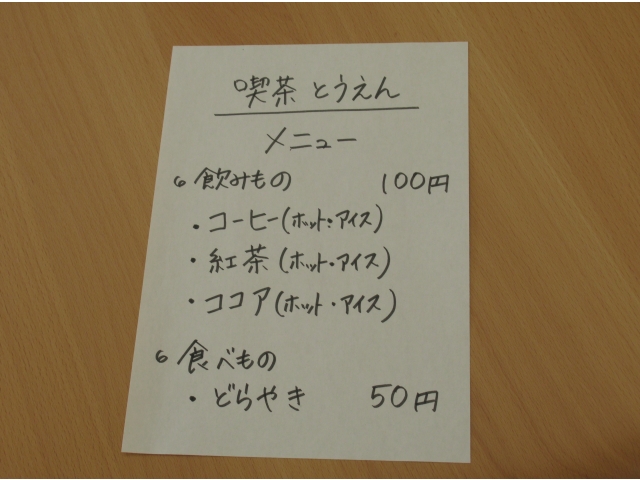 喫茶 とうえん
メニュー
○ 飲みもの 100円
・コーヒー(ホット・アイス)
・紅茶(ホット・アイス)
・ココア(ホット・アイス)
○ 食べもの
・どらやき 50円